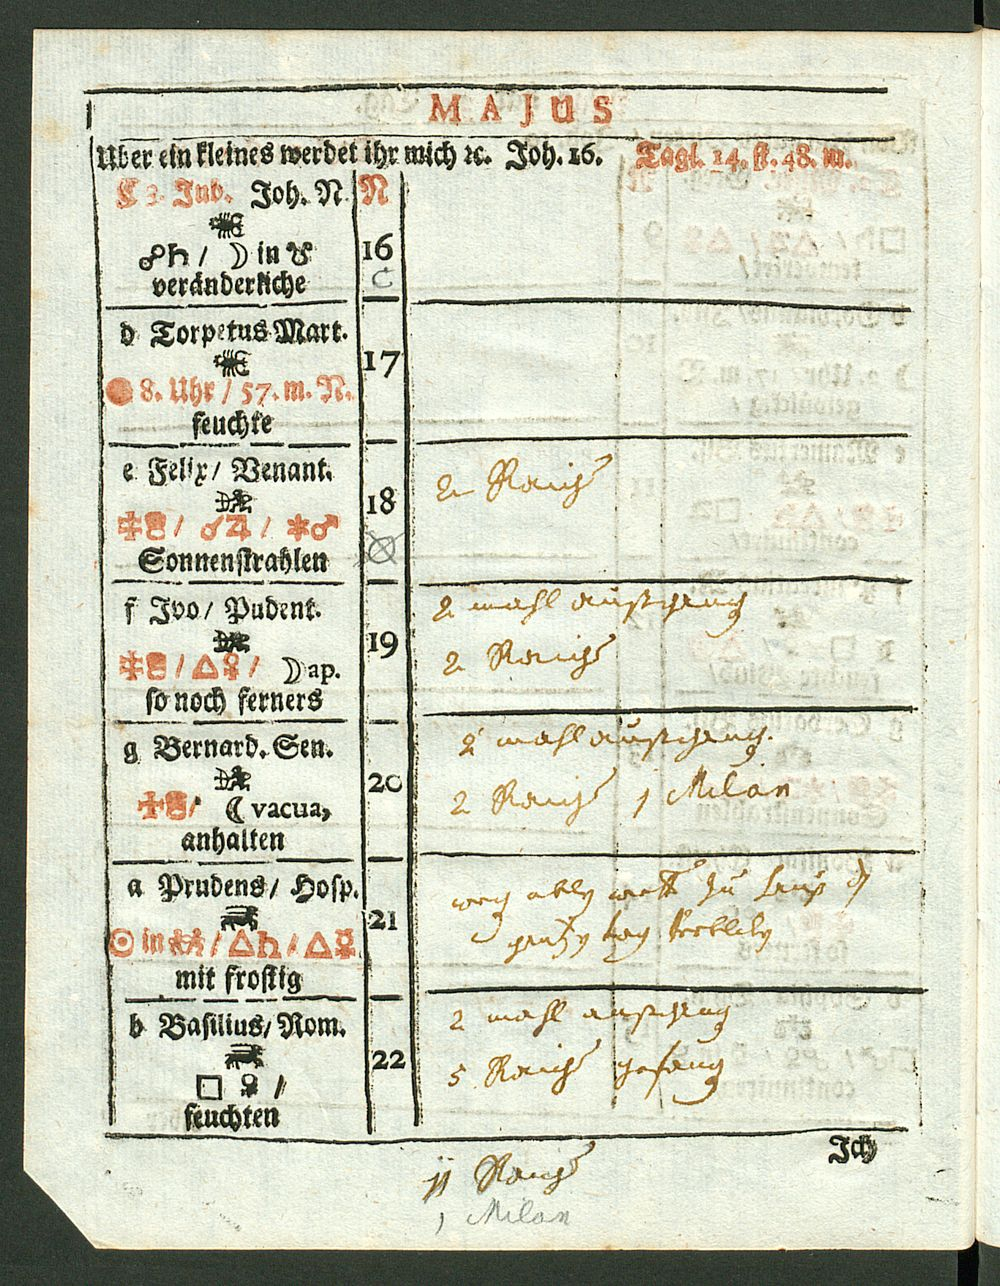 MAJUS
Uber ein kleines werdet ihr mich ꝛc. Joh. 16. Tagl. 14. st. 48. m.
C 3. Jub. Joh. N. N
☍♄ / ☽ in ♉ 16
veränderliche C
d Torpetus Mart.
17
8. Uhr / 57. m. N.
feuchte
e Felix / Venant.
18
/ ☌♃ / ✱♂
Sonnenstrahlen
2 Raiger
f Ivo / Pudent.
19
/ △♀ / ☽ ap.
so noch ferners
2 mahl
2 Raiger
g Bernard. Sen.
20
☾ vacua,
anhalten
2 mahl
2 Raiger 1 Milan
a Prudens / Hosp.
21
☉ in ♊ / △♄ / △☿
mit frostig
b Basilius / Rom.
22
□ ♀ /
feuchten
2 mahl
5 Raiger
Ich
11 Raiger
1 Milan